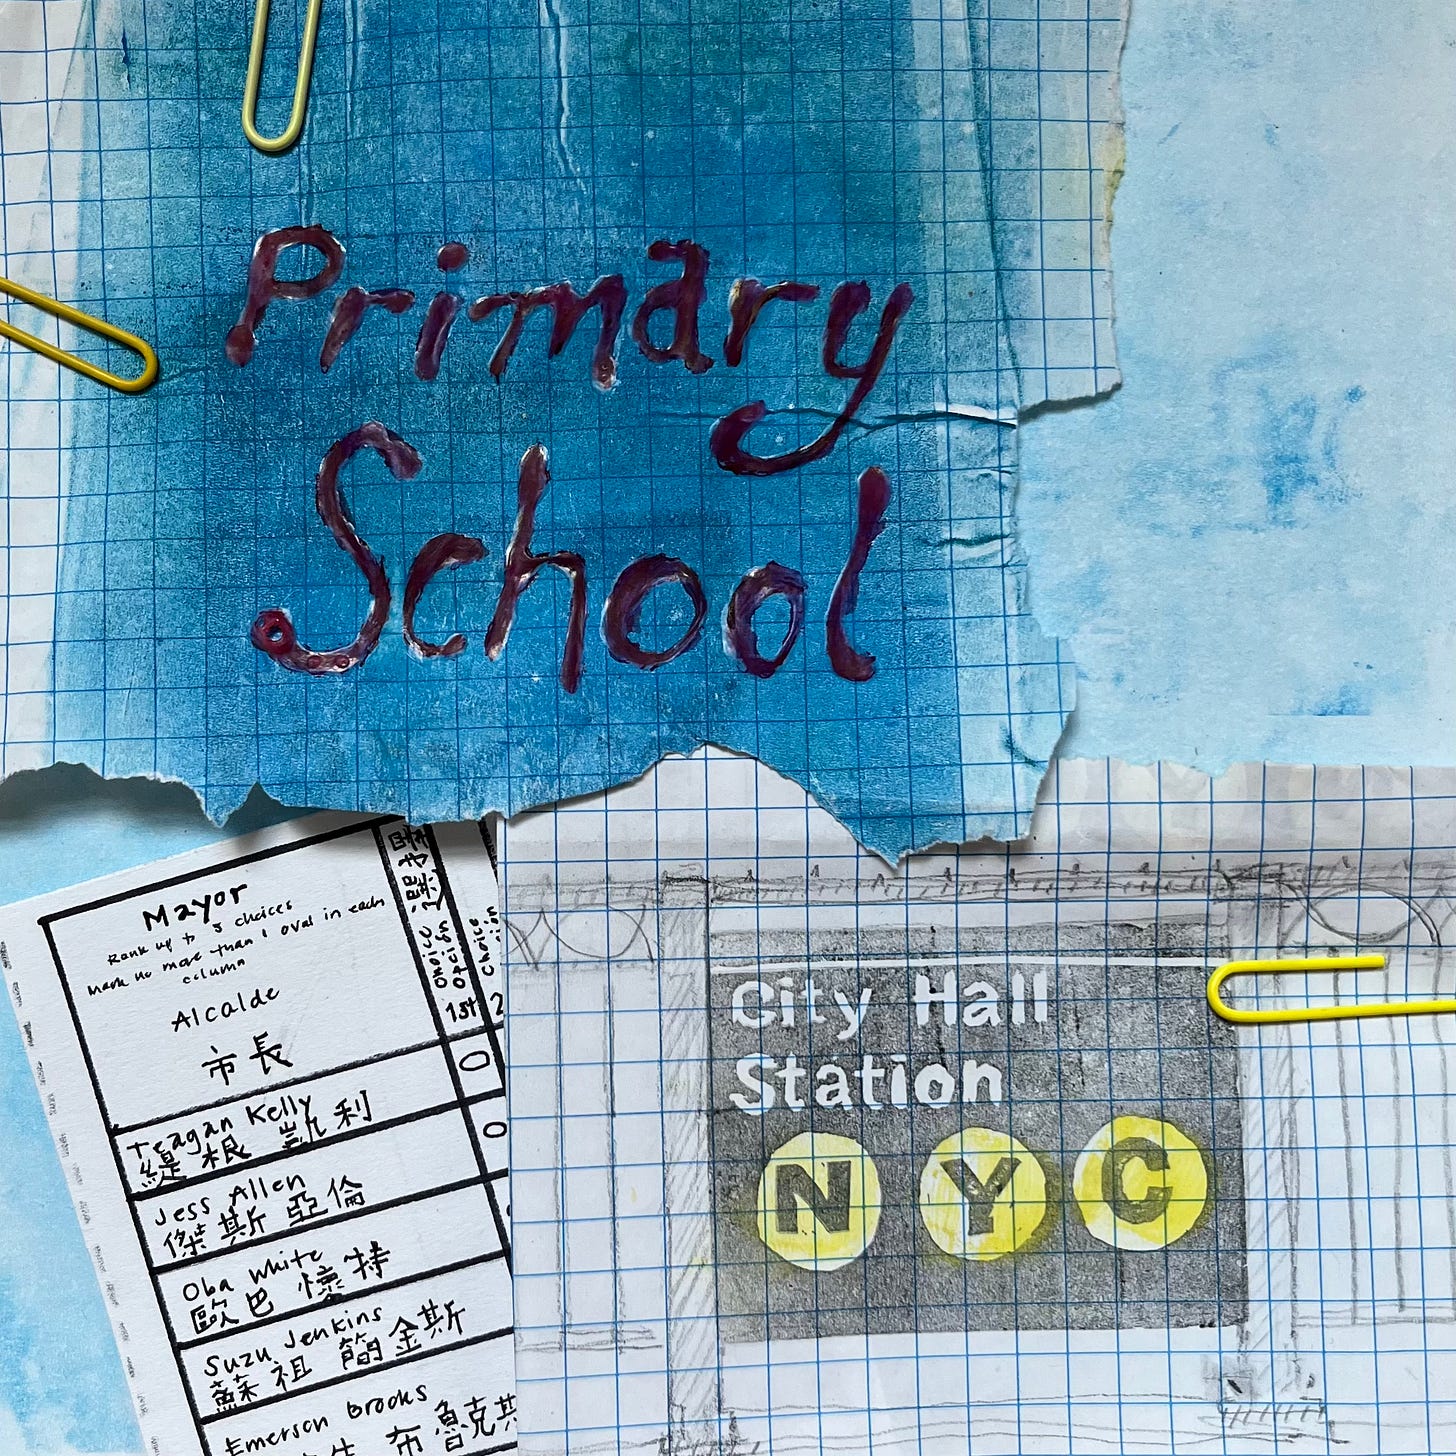 Primary
School
Mayor
Rank up to 5 choices
Mark no more than 1 oval in each
column
Alcalde
市長
Choice
Opción
選擇
1st
Choice
2
Teagan Kelly
緹根 凱利
Jess Allen
傑斯 亞倫
Oba White
歐巴 懷特
Suzu Jenkins
蘇祖 簡金斯
Emerson Brooks
布魯克斯
City Hall
Station
N Y C